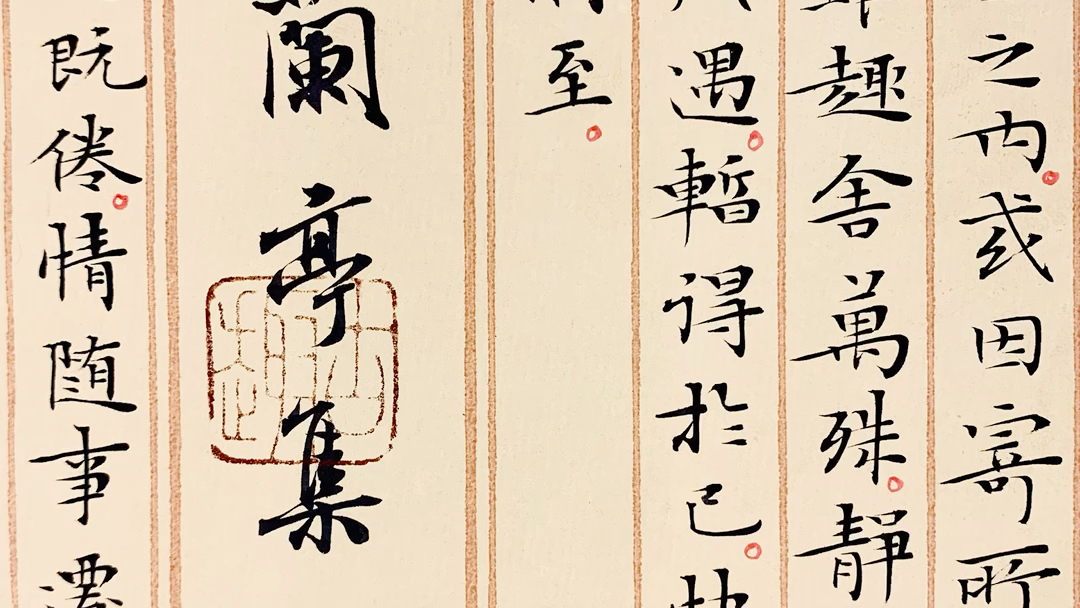 之内或因寄所
趣舍萬殊靜
遇暫得於己
至
蘭亭集
既倦情随事遷